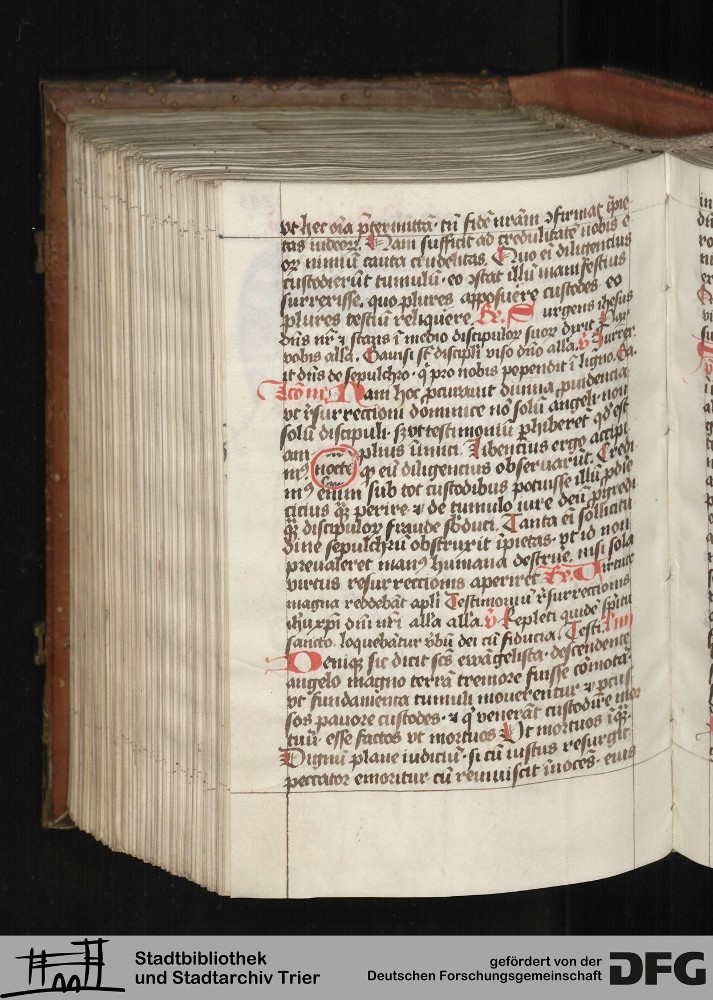 vt hec oīa p̄termittā· tn̄ fidē nr̄am ɔfirmat īpie
tas iudeoꝝ. Nam sufficit ad credulitatē nobis e
oꝝ nimiū cauta crudelitas. Quo eī diligencius
custodierūt tumulū· eo ɔstat illū manifestius
surrexisse. quo plures apposuere custodes· eo
plures testiū reliquere. R̄. Surgens ihesus
dn̄s nr̄ ⁊ stans ī medio discipuloꝝ suoꝝ dixit Pax
vobis alla. Gauisi sȶ discipli viso dn̄o alla. v̄ Surrex
it dn̄s de sepulchro· q̄ pro nobis pependit ī ligno. Ga.
Nam hoc ꝓcurauit diuina ꝓuidencia
vt r̄surrectioni dominice nō solū angeli· non
solū discipuli· sꝫ vt testimoniū ꝑhiberēt qd̓ est
am plius īimici. Libencius ergo accipi
mꝰ nocte qꝫ eū diligencius obseruarūt. Credi
mꝰ enim sub tot custodibus potuisse illū ꝓdie
citius qꝫ perire· ⁊ de tumulo iure deū ꝓgredi
qꝫ discipuloꝝ fraude sb̓duci. Tanta eī sollicitu
dine sepulchrū obstruxit īpietas· vt id non
preualeret manꝰ humana destrūe. nisi sola
virtus resurrectionis aperiret R̄. Virtute
magna reddebāt apl̓i Testimoniū r̄surrectionis
ihū xp̄i dn̄i nr̄i alla alla. v̄ Repleti quidē sp̄itu
sancto· loquebātur v̓bū dei cū fiducia. Testi.
Deniqꝫ sic dicit scs̄ ewāgelista· descendente
angelo magno terrā tremore fuisse cōmotā·
vt fundamenta tumuli mouerentur ⁊ ꝑcus
sos pauore custodes· ⁊ q̓ venerāt custodire mor
tuū· esse factos vt mortuos Vt mortuos īqꝫ·
Dignū plane iudiciū· si cū iustus resurgit
peccator emoritur· cū reuiuiscit īnocēs· eius
Stadtbibliothek
und Stadtarchiv Trier
gefördert von der
Deutschen Forschungsgemeinschaft
DFG